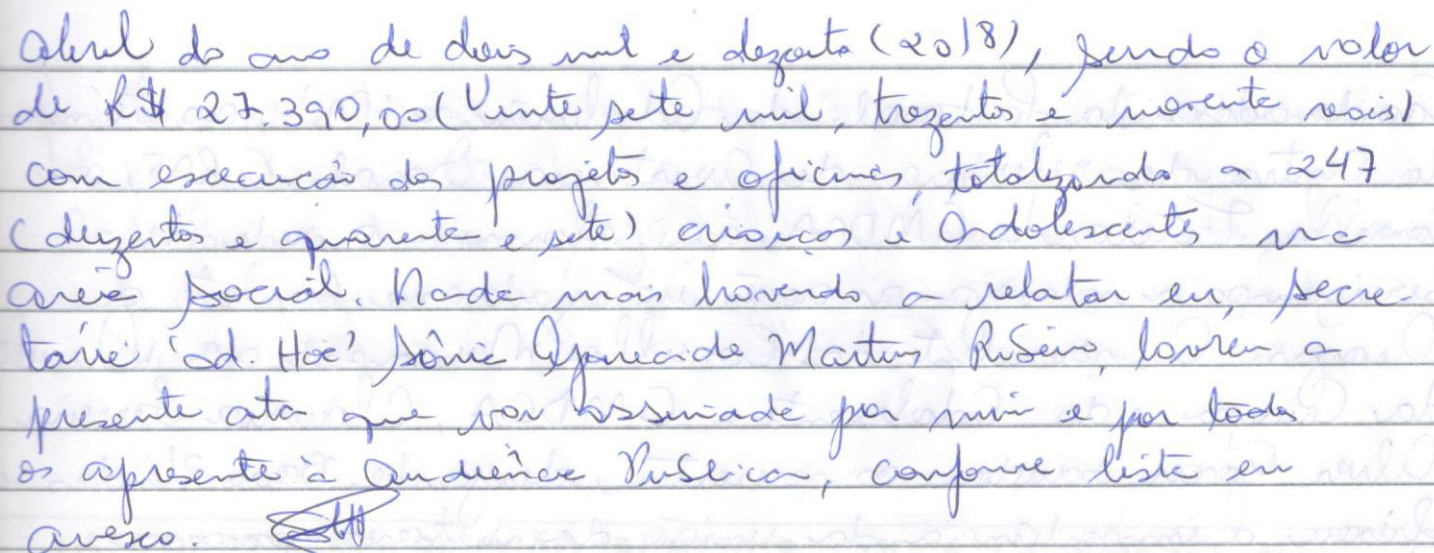 Abril do ano de dois mil e dezoito (2018), sendo o valor
de R$ 27.390,00 (Vinte sete mil, trezentos e noventa reais)
com execução dos projetos e oficinas, totalizando a 247
(duzentos e quarenta e sete) crianças e Adolescentes na
area social. Nada mais havendo a relatar eu, secre-
tária 'ad. Hoc' Sônia Aparecida Martins Ribeiro, lavrei a
presente ata que vai assinada por mim e por todos
os apresente à Audiência Pública, conforme lista em
anexo.